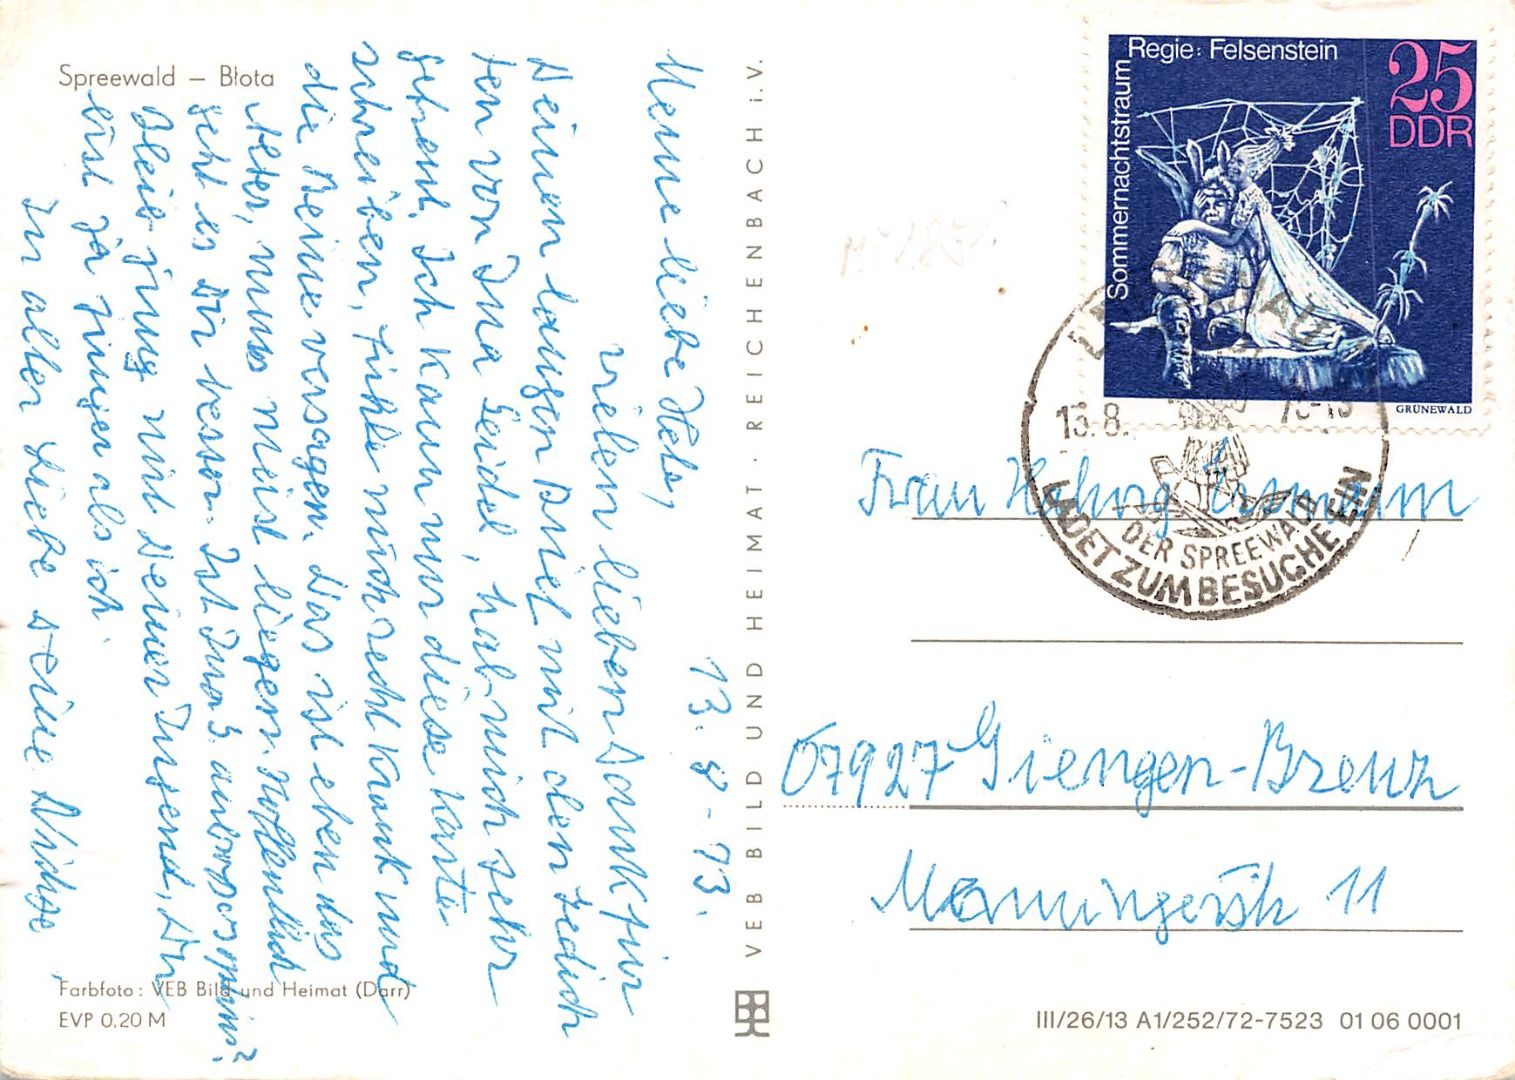 Spreewald – Błota
13. 8. 73.
Meine liebe Hely,
vielen lieben Dank für
Deinen langen Brief mit den Gedich
ten von Ina Seidel, hab mich sehr
gefreut. Ich kann nur diese Karte
schreiben, fühle mich recht krank und
die Beine versagen. Das ist eben das
Alter, muss meist liegen. Hoffentlich
geht es Dir besser. Ist Ina S. anthroposophin?
Bleib jung mit Deiner Jugend, Du
bist ja jünger als ich.
In alter Liebe Deine
Farbfoto: VEB Bild und Heimat (Darr)
EVP 0,20 M
VEB BILD UND HEIMAT · REICHENBACH i. V.
Regie: Felsenstein
Sommernachtstraum
25
DDR
GRÜNEWALD
13.8.
DER SPREEWALD
LADET ZUM BESUCHE EIN
Frau
07927 Giengen-Brenz
11
III/26/13 A1/252/72-7523 01 06 0001